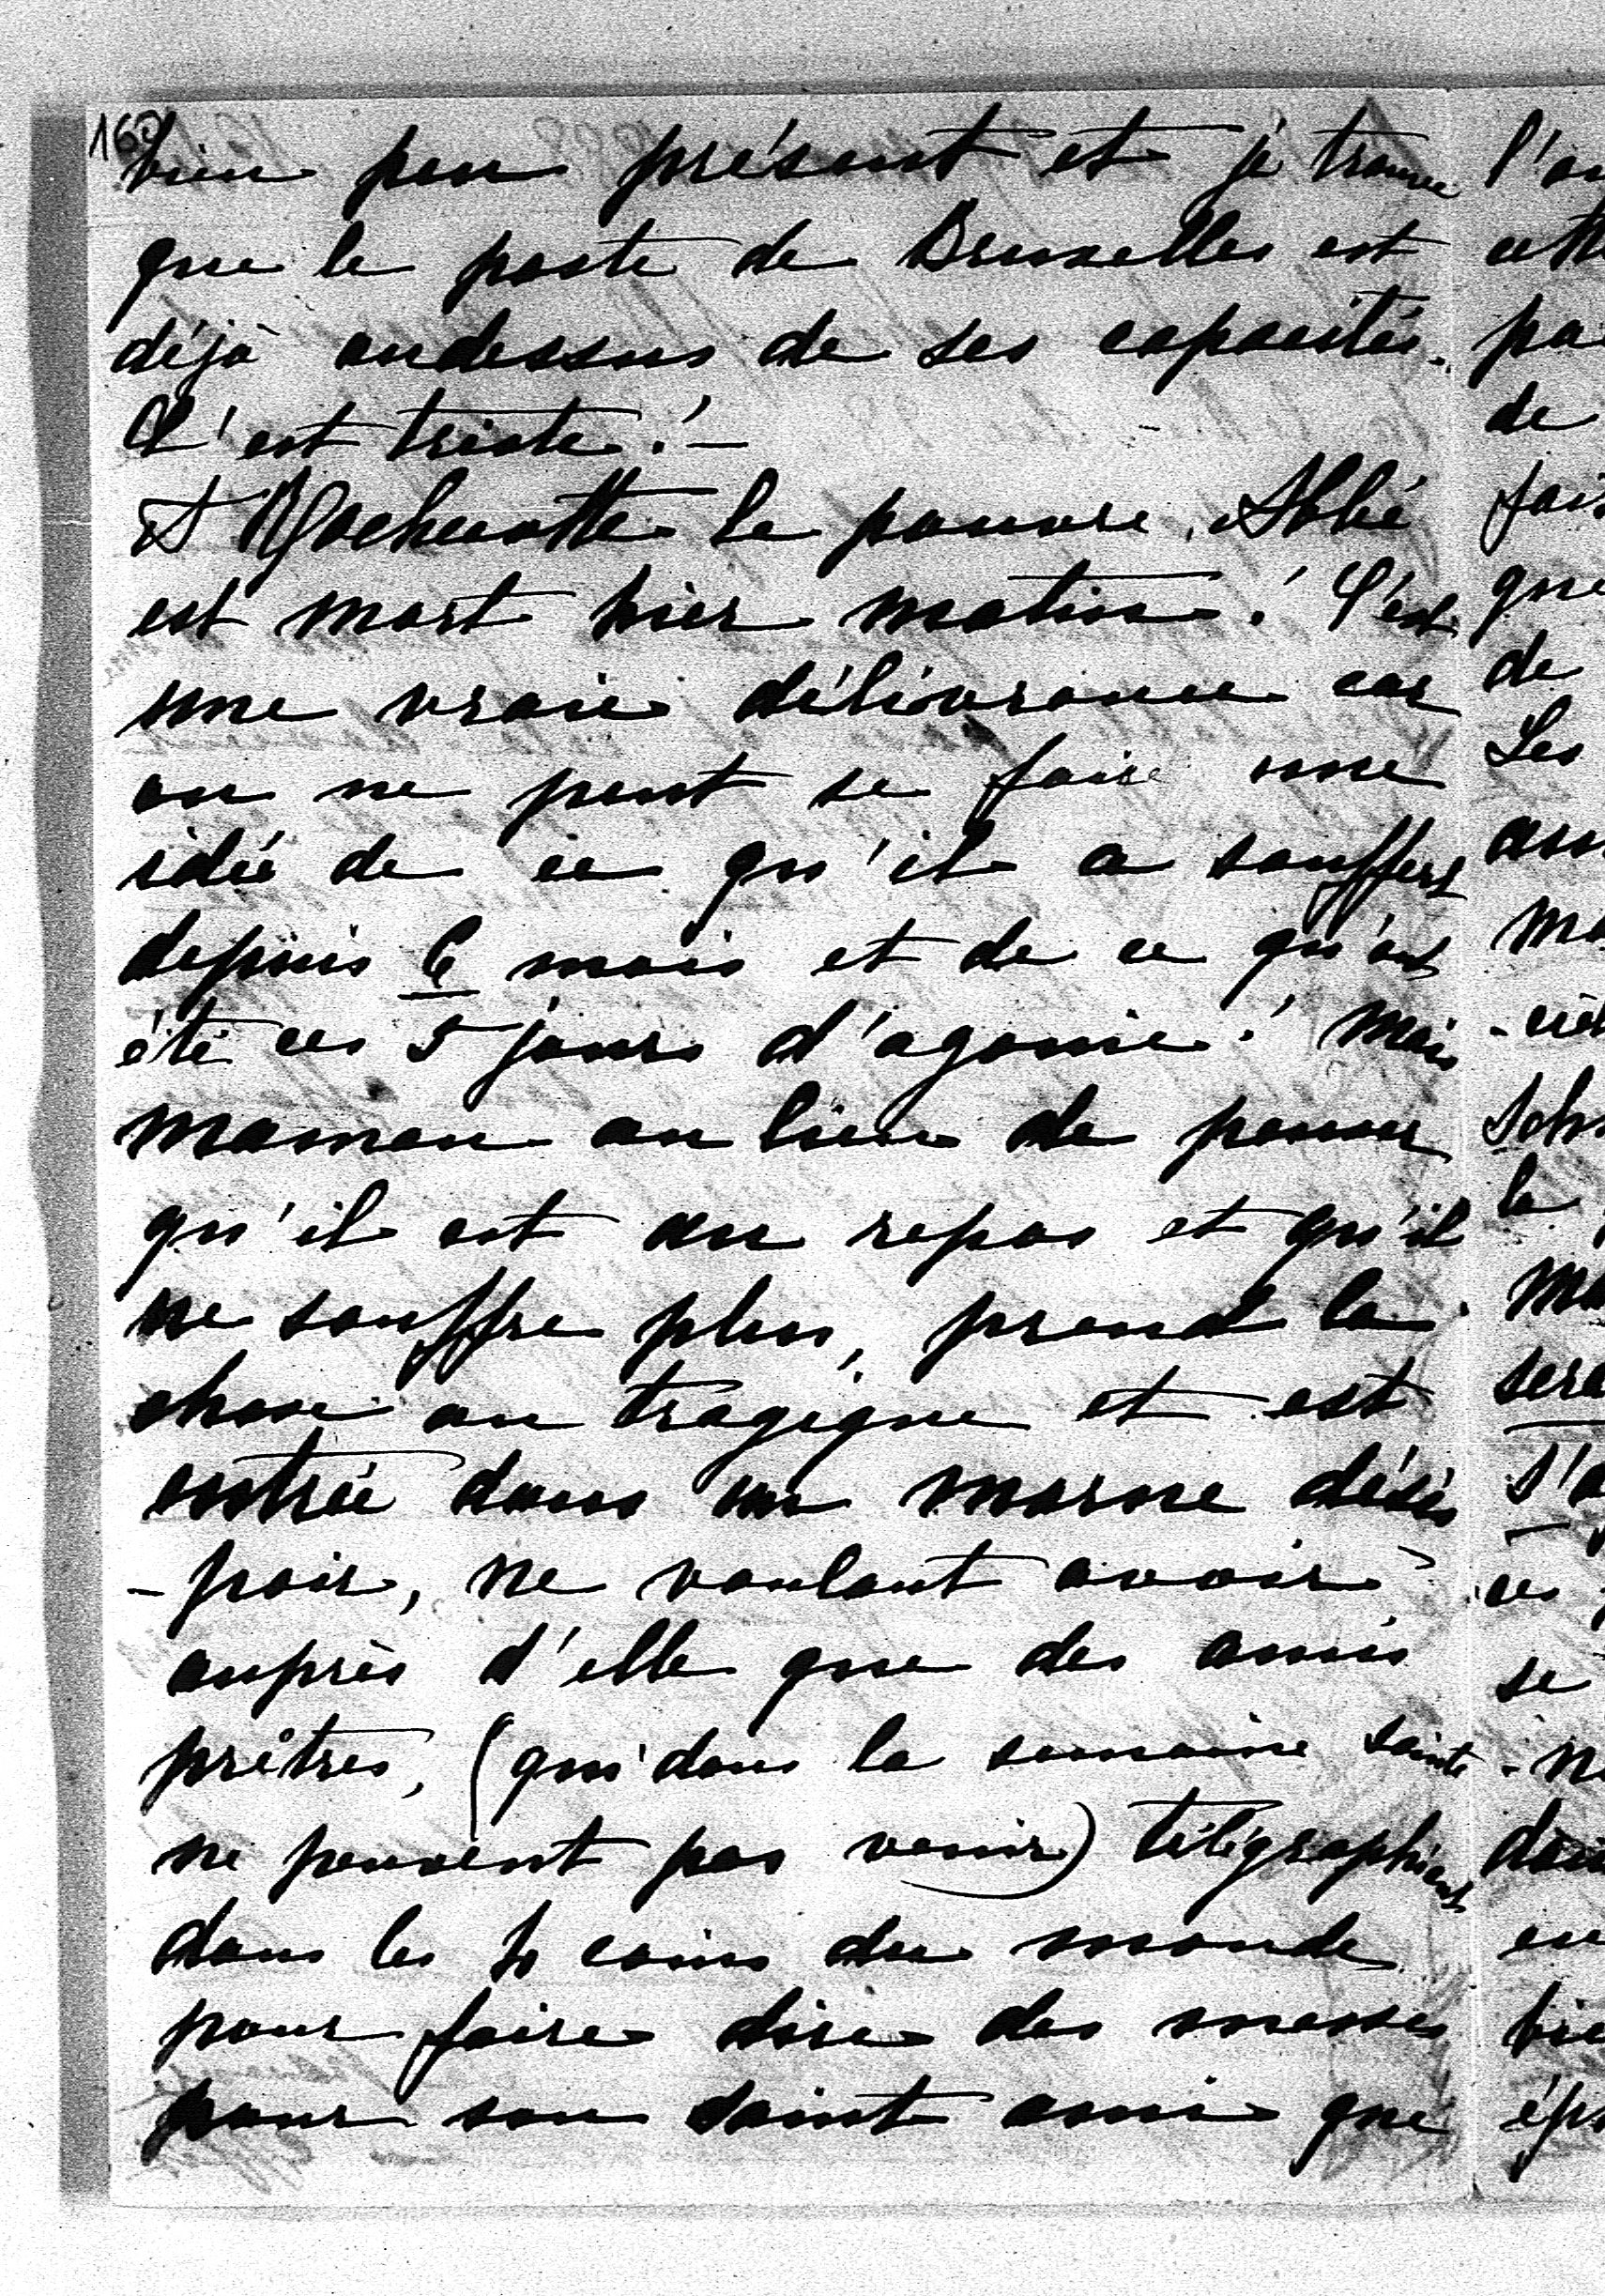 160
bien peu présent et je trouve
que le poste de Bruxelles est
déjà audessus de ses capacités.
C'est triste! —
A Rochecotte le pauvre Abbé
est mort hier matin! C'est
une vraie délivrance car
on ne peut se faire une
idée de ce qu'il a souffert
depuis 6 mois et de ce qu'ont
été ces 5 jours d'agonie! Mais
maman au lieu de penser
qu'il est au repos et qu'il
ne souffre plus, prend la
chose au tragique et est
entrée dans un morne déses
-poir, ne voulant avoir
auprès d'elle que des amis
prêtres, (qui dans la semaine sainte
ne peuvent pas venir) télégraphiant
dans les 4 coins du monde
pour faire dire des messes
pour son saint ami que